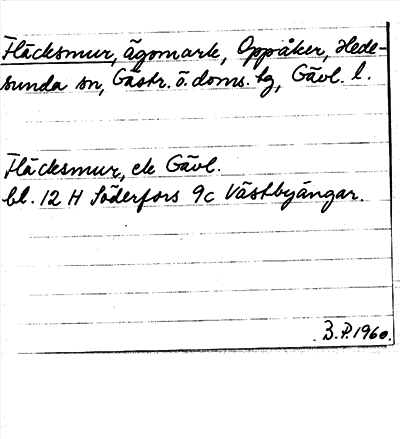 Fläcksmur, ägomark, Oppåker, Hede-
sunda sn, Gästr. ö. doms. hg, Gävl. l.
Fläcksmur, ek Gävl.
bl. 12 H Söderfors 9c Västbyängar.
B.P. 1960.